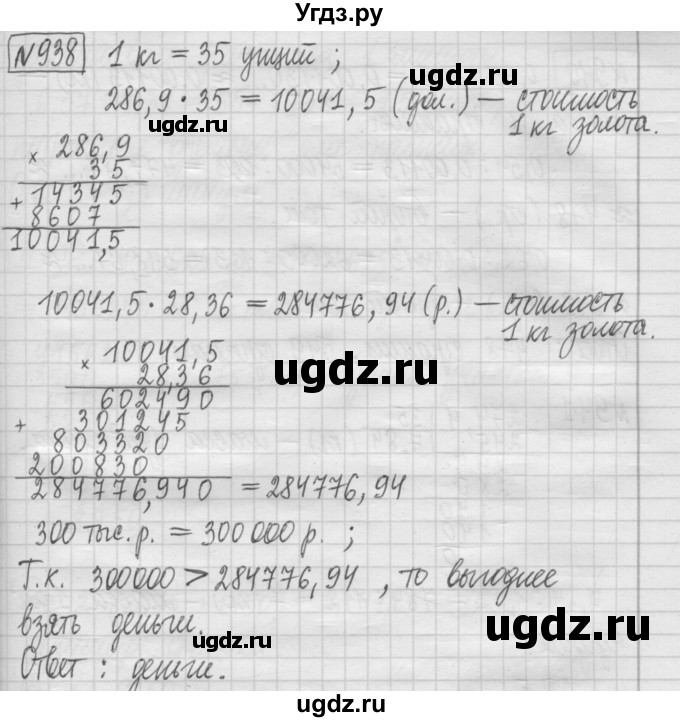 Угдз.ру
№938 1 кг = 35 унций ;
ugdz.ru
286,9 · 35 = 10041,5 (дол.) — стоимость
ugdz.ru
1 кг золота.
× 286,9
35
+ 14345
8607
10041,5
10041,5 · 28,36 = 284776,94 (р.) — стоимость
1 кг золота.
× 10041,5
ugdz.ru
28,36
602490
+ 301245
803320
200830
284776,940 = 284776,94
300 тыс. р. = 300 000 р. ;
ugdz.ru
Т.к. 300000 > 284776,94 , то выгоднее
взять деньги.
ugdz.ru
ugdz.ru
Ответ : деньги.
ugdz.ru